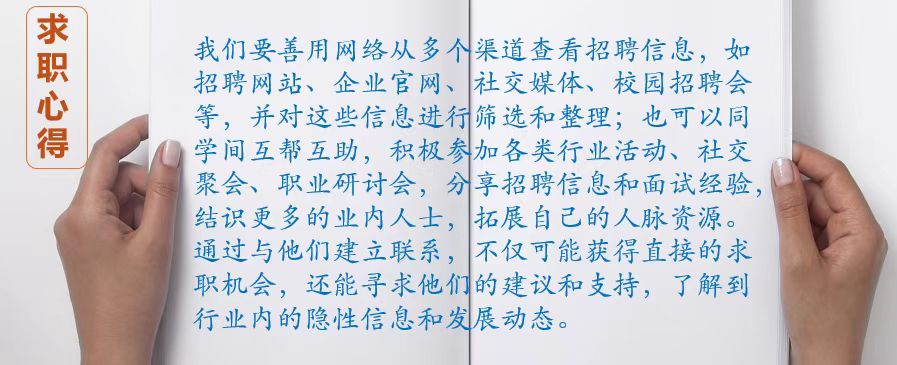 求职心得
我们要善用网络从多个渠道查看招聘信息，如
招聘网站、企业官网、社交媒体、校园招聘会
等，并对这些信息进行筛选和整理；也可以同
学间互帮互助，积极参加各类行业活动、社交
聚会、职业研讨会，分享招聘信息和面试经验，
结识更多的业内人士，拓展自己的人脉资源。
通过与他们建立联系，不仅可能获得直接的求
职机会，还能寻求他们的建议和支持，了解到
行业内的隐性信息和发展动态。